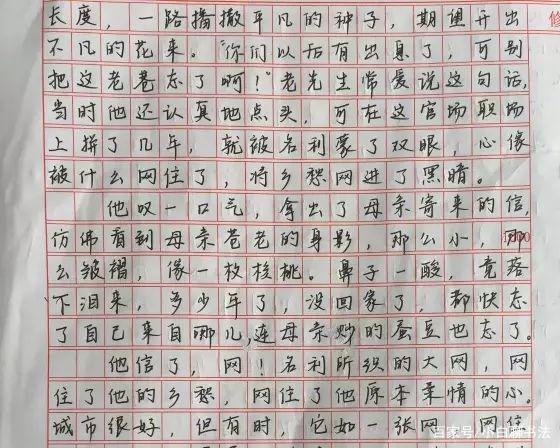 长度，一路播撒平凡的种子，期望开出
修
不凡的花来。“你们以后有出息了，可别
把这老巷忘了啊！”老先生常爱说这句话，
当时他还认真地点头，可在这官场职场
上拼了几年，就被名利蒙了双眼，心像
被什么网住了，将乡愁网进了黑暗。
他叹一口气，拿出了母亲寄来的信，
仿佛看到母亲苍老的身影，那么小，那
么皱褶，像一枚核桃。鼻子一酸，竟落
下泪来，多少年了，没回家了，都快忘
了自己来自哪儿，连母亲炒的蚕豆也忘了。
他信了，网！名利所织的大网，网
住了他的乡愁，网住了他原本柔情的心。
城市很好，但有时，它如一张网，网住
百家号/小白聊书法